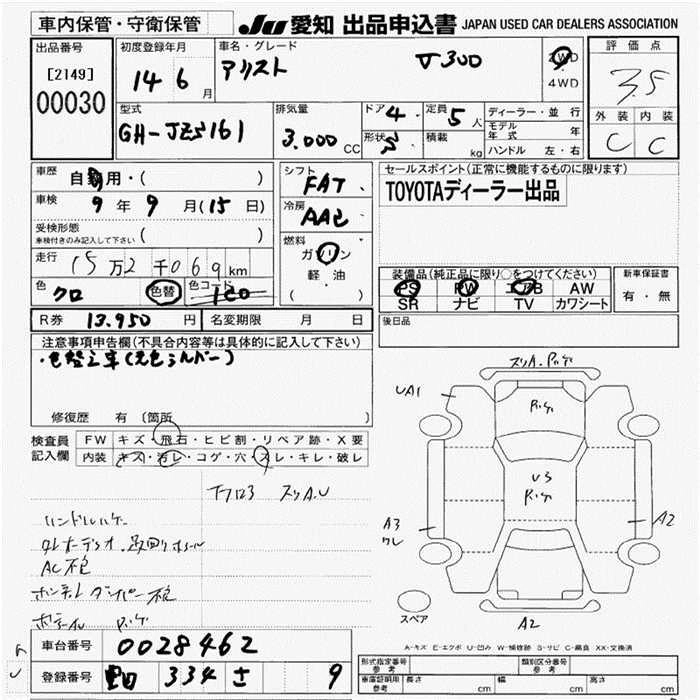 車内保管・守衛保管
JU 愛知 出品申込書 JAPAN USED CAR DEALERS ASSOCIATION
出品番号
[2149]
00030
初度登録年月
14年 6月
車名・グレード
アリスト V300
2WD
・
4WD
評価点
3.5
外装 内装
C C
型式
GH-JZS161
排気量
3.000 CC
ドア 4
形状 S
定員 5人
積載 kg
ディーラー・並行
モデル年式 年
ハンドル 左・右
車歴
自家用・( )
車検
9年9月(15日)
受検形態
車検付きのみ記入して下さい ( )
走行
15万2千069km
色
クロ
色替
色コード
1C0
シフト
FAT
冷房
AAC
燃料
ガソリン
軽・油
( )
セールスポイント(正常に機能するものに限ります)
TOYOTAディーラー出品
装備品(純正品に限り○をつけてください)
PS PW エアB AW
SR ナビ TV カワシート
新車保証書
有・無
R券 13.950 円
名変期限 月 日
後日品
注意事項申告欄(不具合内容等は具体的に記入して下さい)
・色替え車(元色シルバー)
修復歴 有 (箇所
検査員
記入欄
FW キズ・飛石・ヒビ割・リペア跡・X要
内装 キズ・汚レ・コゲ・穴・スレ・キレ・破レ
スリA.U
ハンドルハゲ
AC不良
スリA.
UA1
U3
A3
A2
スペア
A2
A-キズ E-エクボ U-凹み W-補修跡 S-サビ C-腐食 XX-交換済
車台番号 0028462
登録番号 334 さ 9
型式指定番号
参考
類別区分番号
参考
車庫証明用
参考
長さ cm 幅 cm 高さ cm